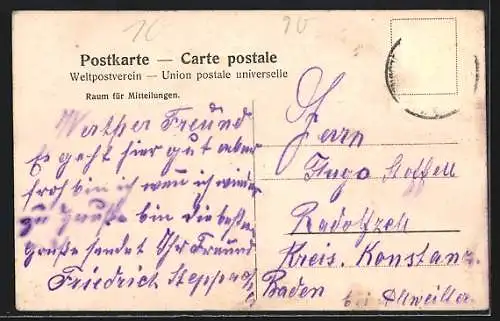 Postkarte — Carte postale
Weltpostverein — Union postale universelle
Raum für Mitteilungen.
Werther Freund
Es geht hier gut aber
froh bin ich wenn ich wieder
zu Hause bin die besten
grüße sendet Ihr Freund
Friedrich
Herrn
Hugo Stoffell
Radolfzell
Kreis. Konstanz
Baden
bei